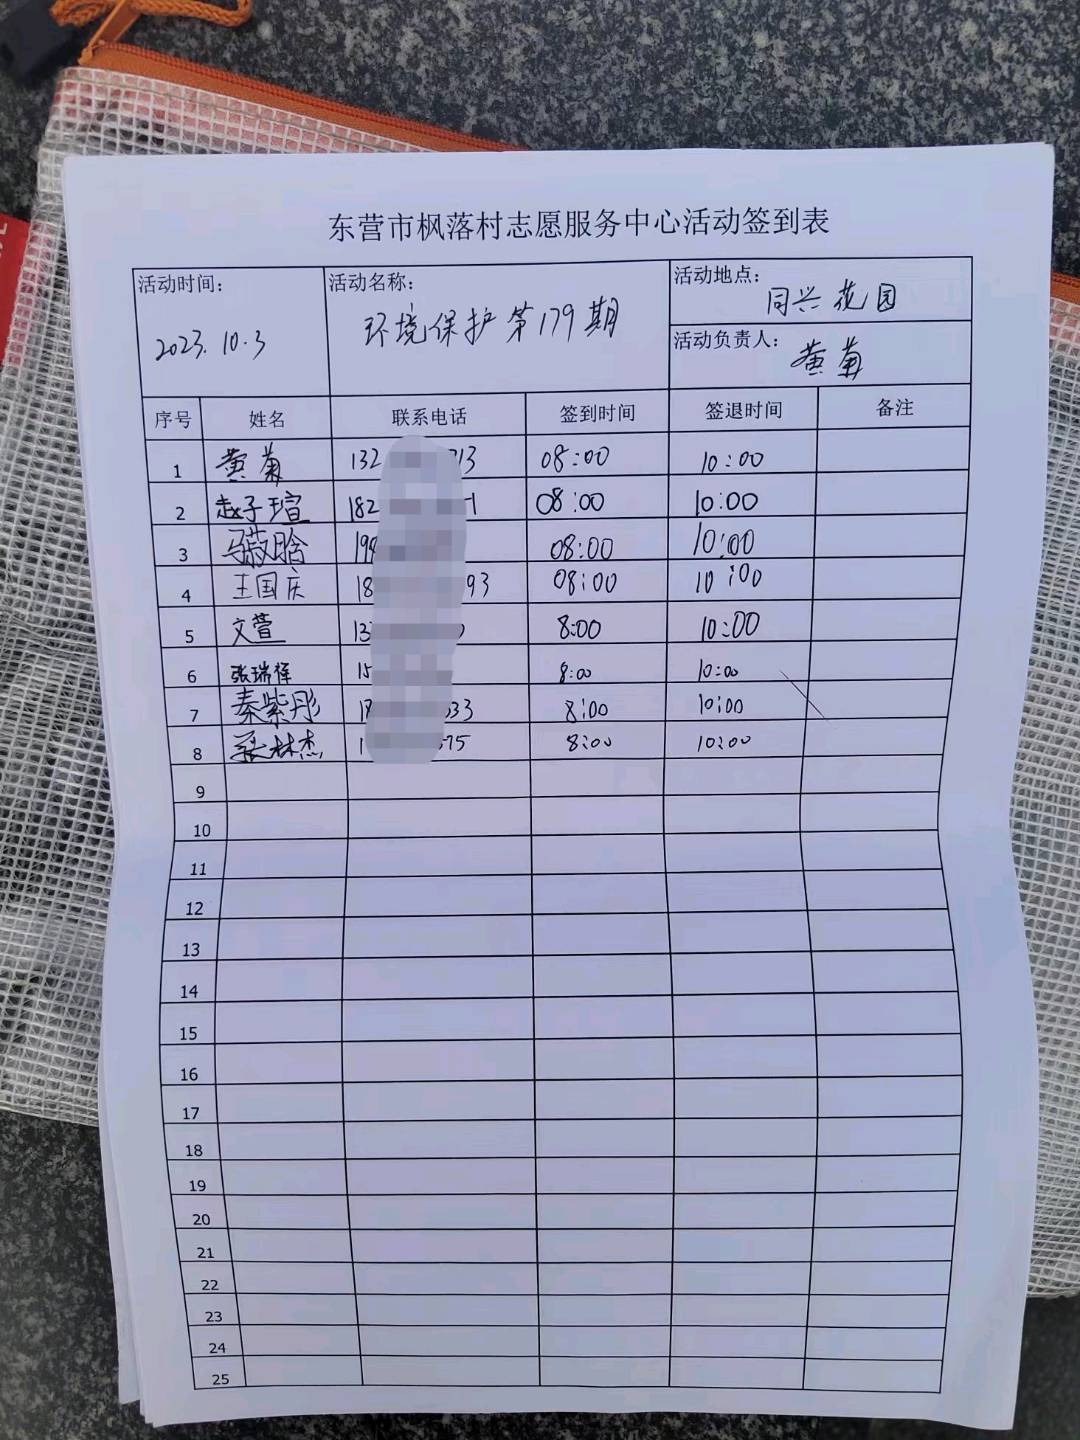 东营市枫落村志愿服务中心活动签到表
活动时间: 活动名称: 活动地点:
2023.10.3 环境保护第179期 同兴花园
活动负责人: 黄菊
序号 姓名 联系电话 签到时间 签退时间 备注
1 黄菊 132 713 08:00 10:00
2 赵子瑄 182 1 08:00 10:00
3 08:00 10:00
4 王国庆 18 93 08:00 10:00
5 文萱 13 8:00 10:00
6 张瑞 15 8:00 10:00
7 秦紫彤 1 33 8:00 10:00
8 林杰 1 75 8:00 10:00
9
10
11
12
13
14
15
16
17
18
19
20
21
22
23
24
25